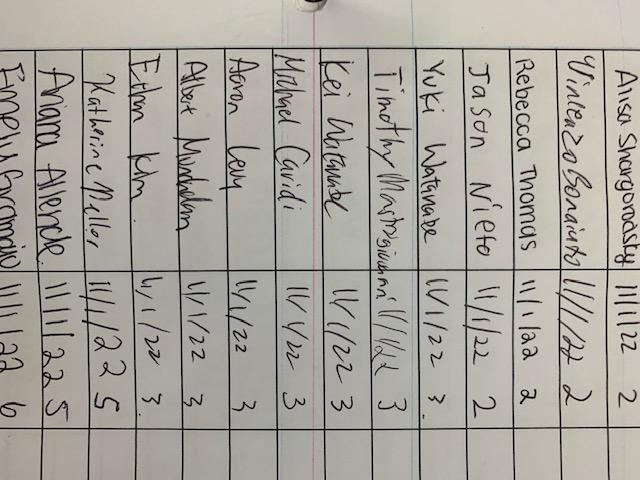 Alisa Shorgorodsky 11/1/22 2
Vincenzo 11/1/22 2
Rebecca Thomas 11/1/22 2
Jason Nieto 11/1/22 2
Yuki Watanabe 11/1/22 3.
Timothy 11/1/22 3
Kei Watanabe 11/1/22 3
Michael Cavidi 11/1/22 3
Aaron Levy 11/1/22 3
Albert 11/1/22 3
Ethan Kim. 11/1/22 3.
Katherine Pellor 11/1/22 5
Anara Allende. 11/1/22 5
Emely 11/1/22 6